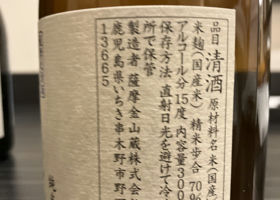 品目 清酒 原材料名 米(国産)
米麹(国産米) 精米歩合 70%
アルコール分15度 内容量300
保存方法 直射日光を避けて冷
所で保管
製造者 薩摩金山蔵株式会
鹿児島県いちき串木野市野
13665